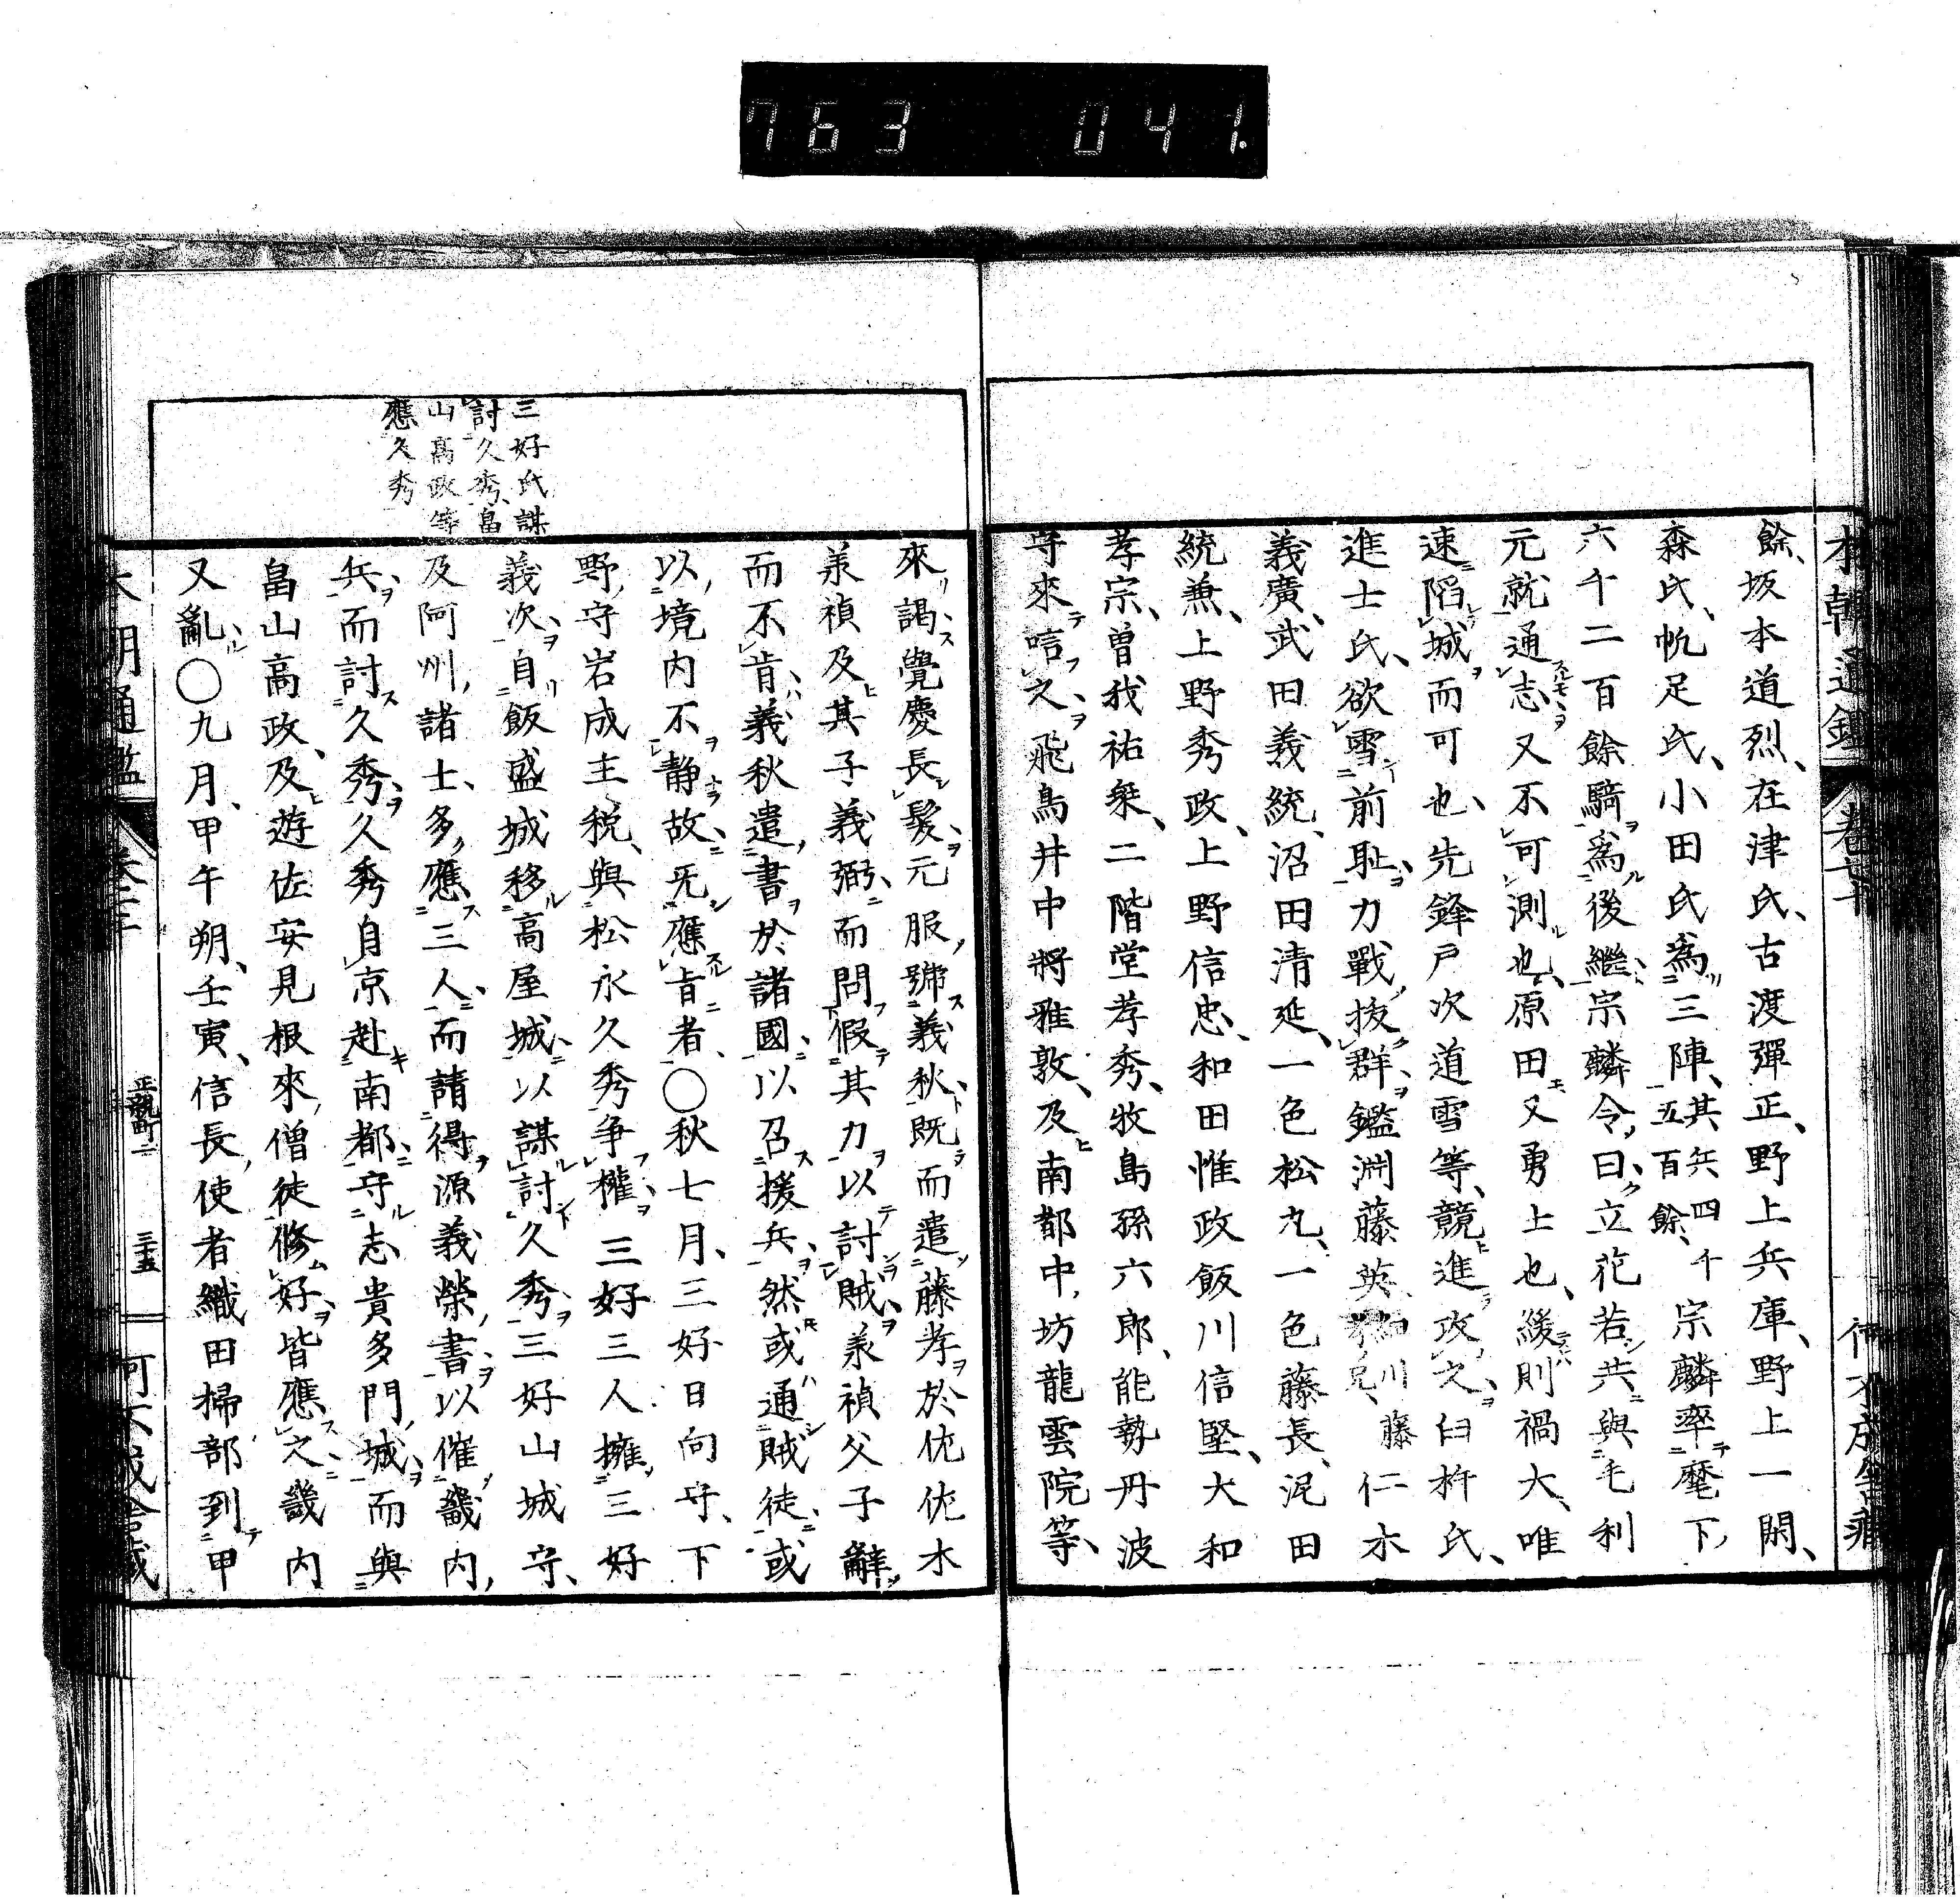 763 041.
餘、坂本道烈、在津氏、古渡彈正、野上兵庫、野上一閑、
森氏、帆足氏、小田氏為三陣、其兵四千五百餘、宗麟率麾下、
六千二百餘騎為後繼、宗麟令曰、立花若共與毛利
元就通志又不可測也、原田又勇士也、緩則禍大、唯
速陷城而可也、先鋒戸次道雪等、競進攻之、臼杵氏、
進士氏、欲雪前恥、力戰、拔群鑑渕藤英細川藤孝兄、仁木
義廣、武田義統、沼田清延、一色松丸、一色藤長、沼田
統兼、上野秀政、上野信忠、和田惟政飯川信堅、大和
孝宗、曽我祐乗、二階堂孝秀、牧島孫六郎、能勢丹波
守來唁之、飛鳥井中將雅敦、及南都中坊龍雲院等、
本朝通鑑 卷七十
三好氏謀
討久秀、畠
山高政等
應久秀
來謁、覺慶長髮元服、號義秋、既而遣藤孝於佐佐木
義禎及其子義弼、而問假其力以討賊、義禎父子辭
而不肯、義秋遣書於諸國以召援兵、然或通賊徒、或
以境内不靜故、旡應旨者、○秋七月、三好日向守、下
野守岩成主税、與松永久秀爭權、三好三人擁三好
義次、自飯盛城移高屋城、以謀討久秀、三好山城守、
及阿州諸士、多應三人、而請得源義榮書以催畿内、
兵、而討久秀、久秀自京赴南都、守志貴多門城、而與
畠山高政、及遊佐安見根來僧徒修好、皆應之、畿内
又亂、○九月、甲午朔、壬寅、信長使者織田掃部到甲
三十五